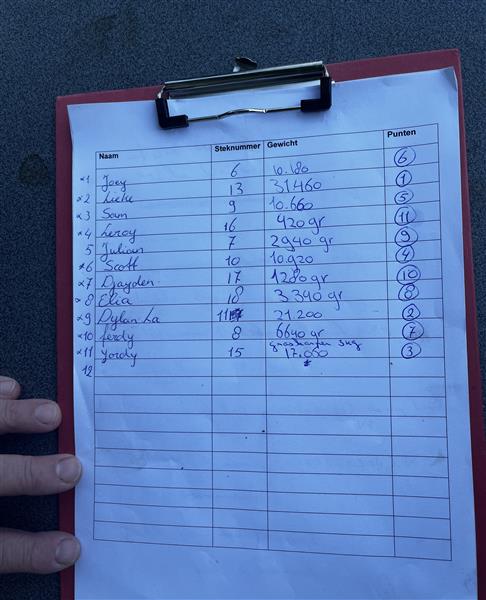 Naam Steknummer Gewicht Punten
*1 Joey 6 10.180 6
*2 Lieke 13 31.460 1
*3 Sam 9 10.660 5
*4 Leroy 16 420 gr 11
5 Julian 7 2940 gr 9
*6 Scott 10 10.920 4
*7 Djayden 17 1280 gr 10
*8 Elia 18 3.390 gr 8
*9 Dylan La 11 21.200 2
*10 ferdy 8 6640 gr 7
graskarper
*11 Yordy 15 17.050 3
12 *